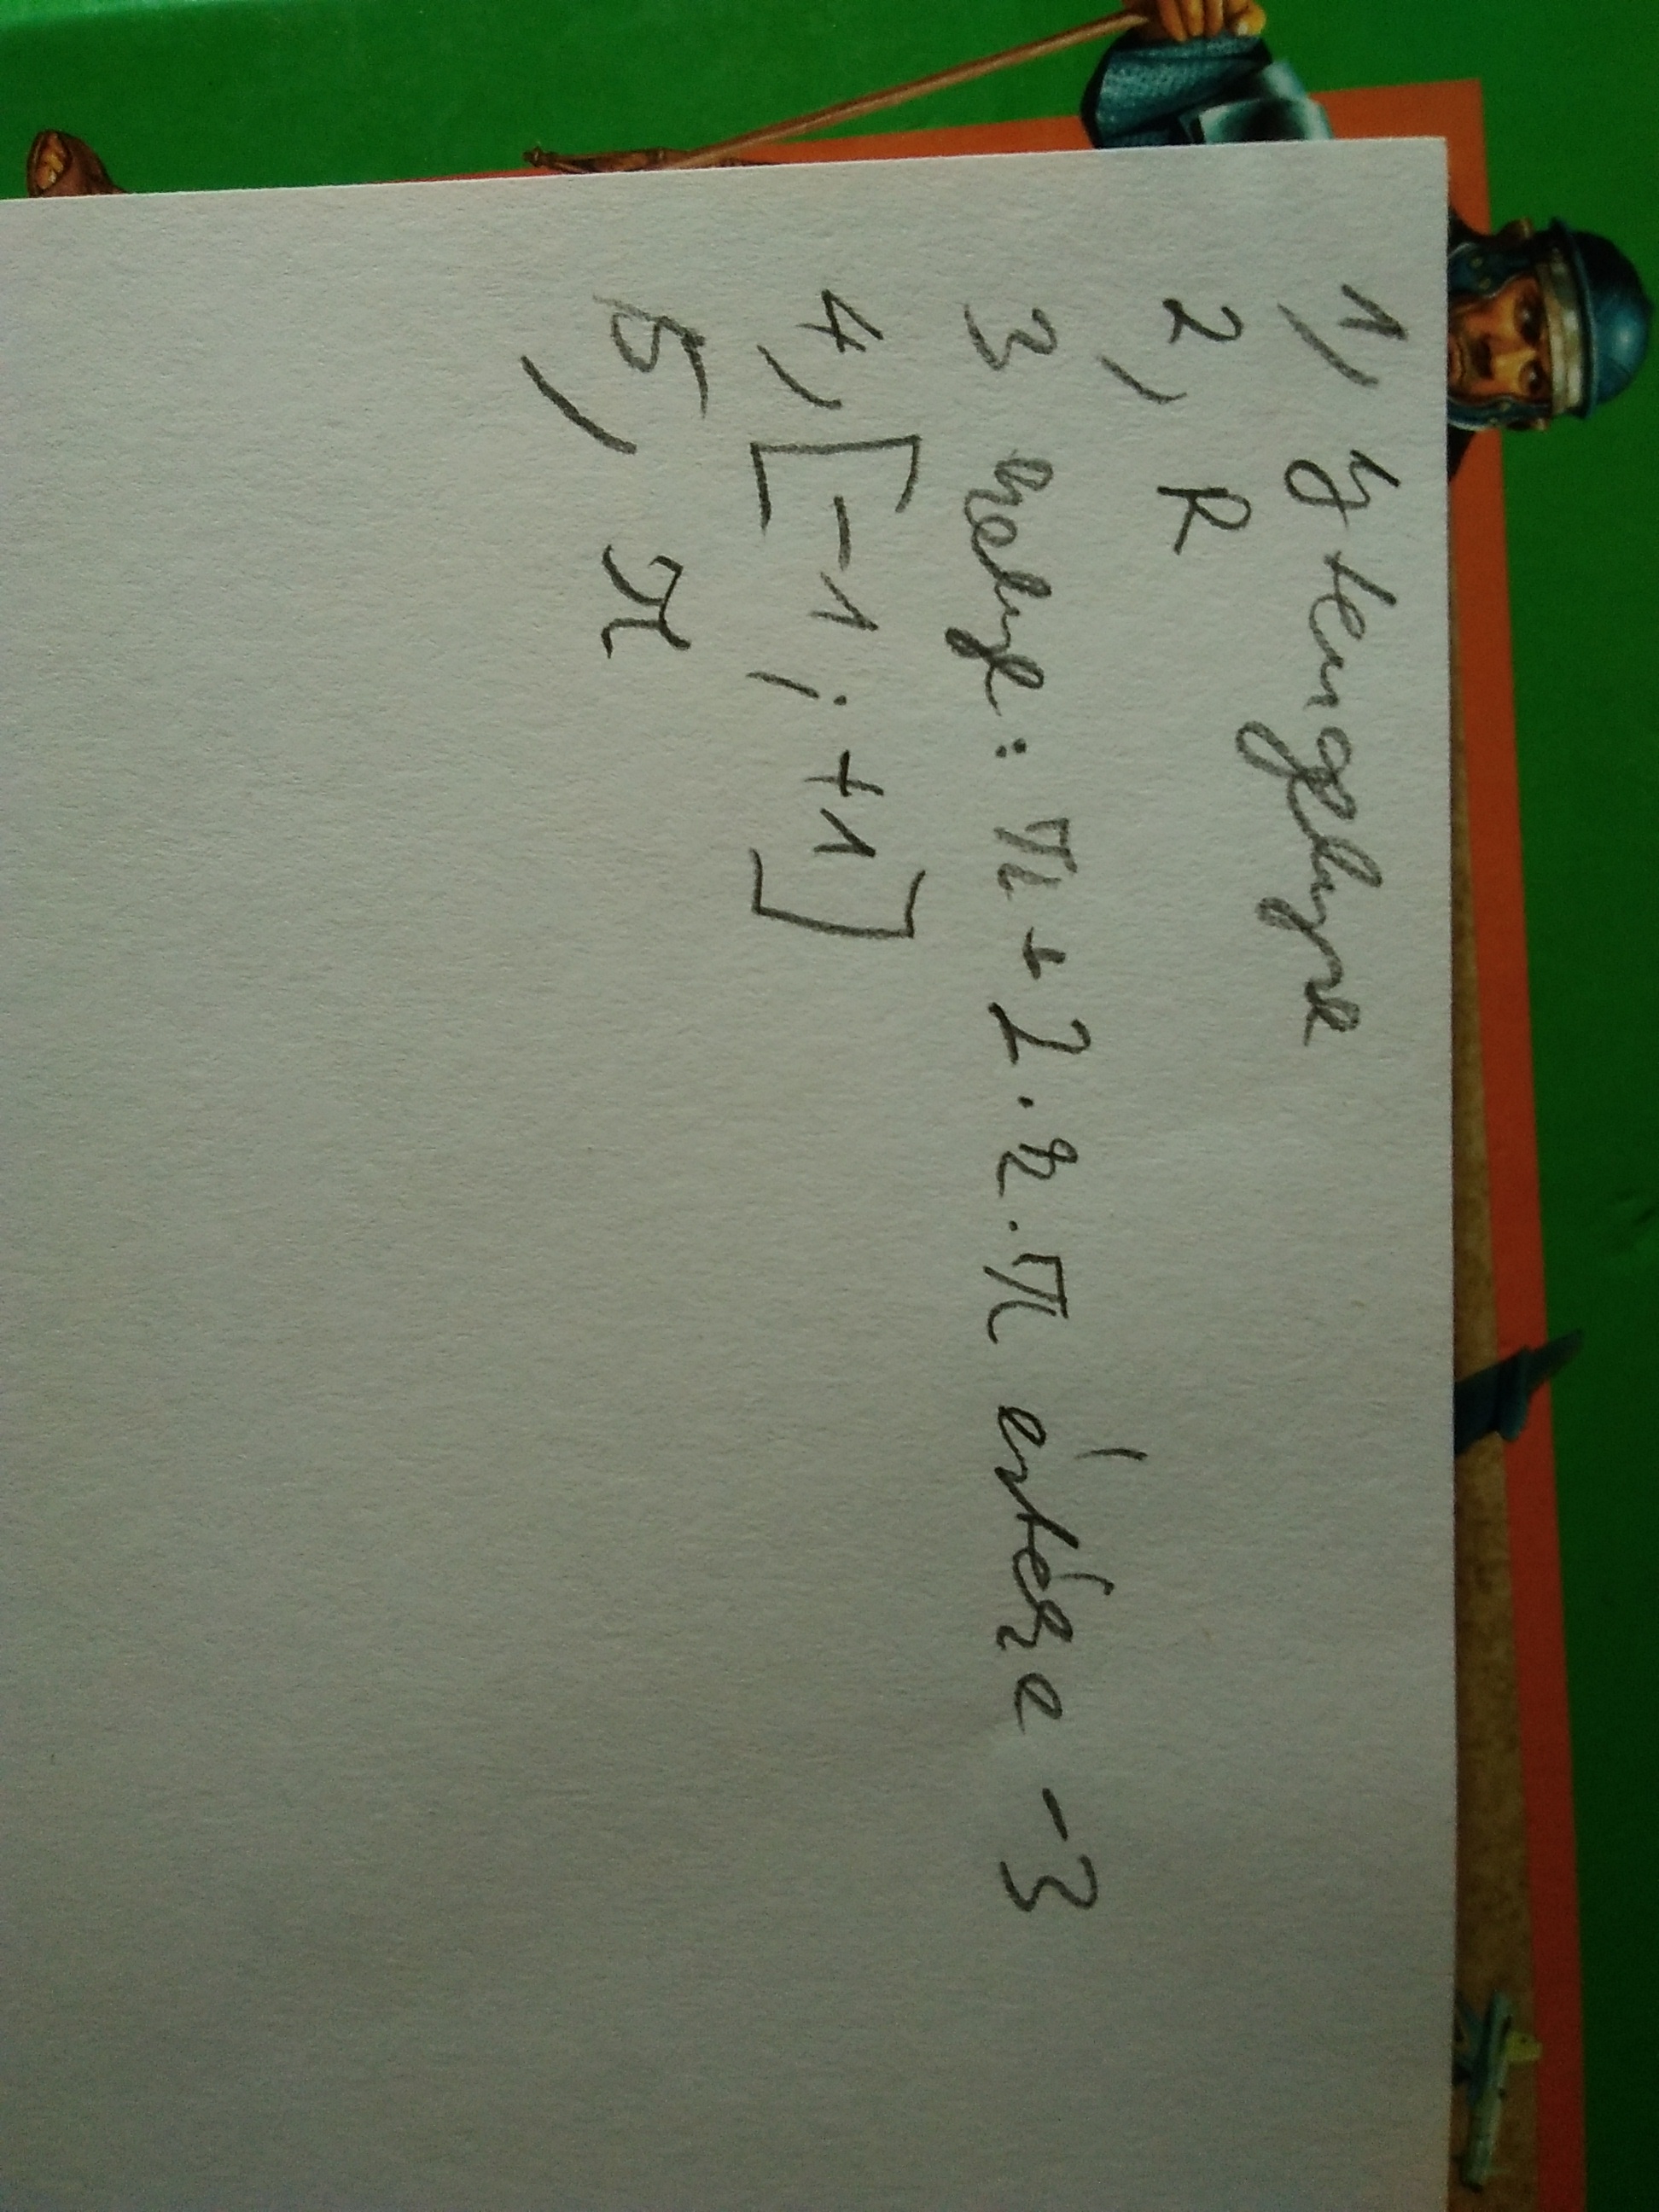 1, y tengelyre
2, R
3 helye: π + 2·k·π értéke -3
4, [-1 ; +1]
5, π